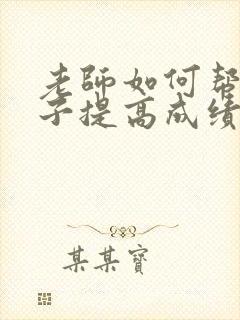 老師如何幫
子提高成績
某某寶